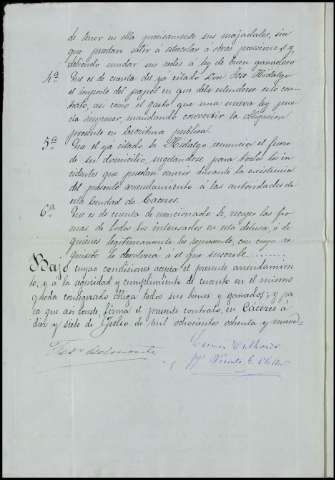 de tener en ella precisamente sus majadales, sin
que puedan salir á establar á otras posesiones y
debiendo mudar sus redes a ley de buen ganadero
4ª. Que es de cuenta del ya citado Don José Hidalgo
el importe del papel en que debe estenderse este con-
trato, asi como el gasto que una nueva ley pu-
da imponer, mandando convertir la obligacion
presente en Escritura publica.
5ª. Que el ya citado Sr Hidalgo renuncia el fuero
de su domicilio, sugetandose para todos los in-
cidentes que puedan ocurrir durante la existencia
del presente arrendamiento á las autoridades de
esta Ciudad de Cáceres.
6ª. Que es de cuenta del mencionado Sr, recoger las fir-
mas de todos los interesados en esta dehesa, ó de
quienes legitimamente los represente, con cuyo re-
quisito lo devolverá á el que suscribe
Bajo cuyas condiciones acepta el presente arrendamien-
to, y á la seguridad y cumplimiento de cuanto en el mismo
queda consignado obliga todos sus bienes y ganados; y pa-
ra que asi conste, firma el presente contrato, en Cáceres á
diez y siete de Julio de mil ochocientos ochenta y nueve.